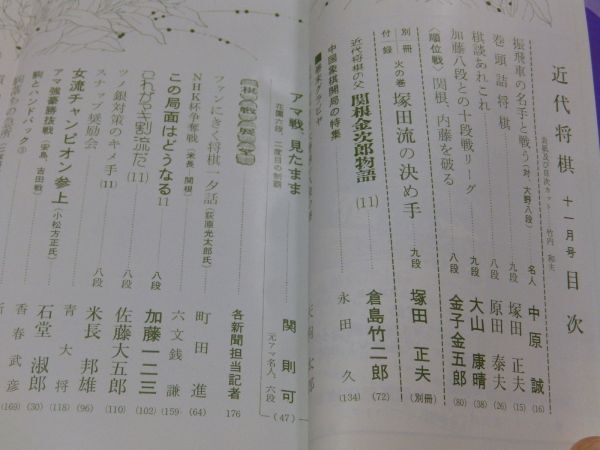 近代将棋 十一月号 目次
表紙及び目次カット……竹内和夫
振飛車の名手と戦う(対、大野八段) 名人 中原誠 (16)
巻頭詰将棋 九段 塚田正夫 (15)
棋談あれこれ 八段 原田泰夫 (26)
加藤八段との十段戦リーグ 九段 大山康晴 (38)
〈順位戦〉関根、内藤を破る 八段 金子金五郎 (80)
別冊付録 火の巻 塚田流の決め手 九段 塚田正夫 (別冊)
近代将棋の父 関根金次郎物語 (11) 倉島竹二郎 (72)
中国象棋開局の特集 永田久 (134)
アマ戦、見たまま 関則可 元アマ名人、六段 (47)
花園六段、二度目の制覇
棋戦展望 各新聞担当記者 176
ファンにきく将棋一夕話(荻原光太郎氏) 町田進 (64)
NHK杯争奪戦(米長 関根) 六文銭謙 (159)
この局面はどうなる 11 八段 加藤一二三 (102)
これが中割流だ (11) 佐藤大五郎 (110)
ツノ銀対策のキメ手 (11) 八段 米長邦雄 (96)
スナップ奨励会 青大将 (118)
女流チャンピオン参上(小松方正氏) 石堂淑郎 (30)
アマ強豪勝抜戦(安島、吉田戦) 香春武彦 (169)
駒とハンドバック③